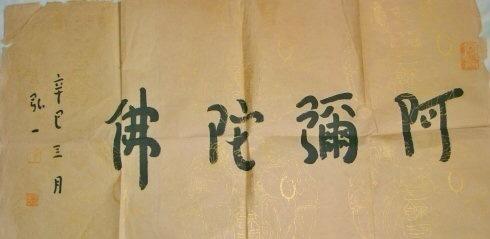 阿彌陀佛
辛巳三月
弘一